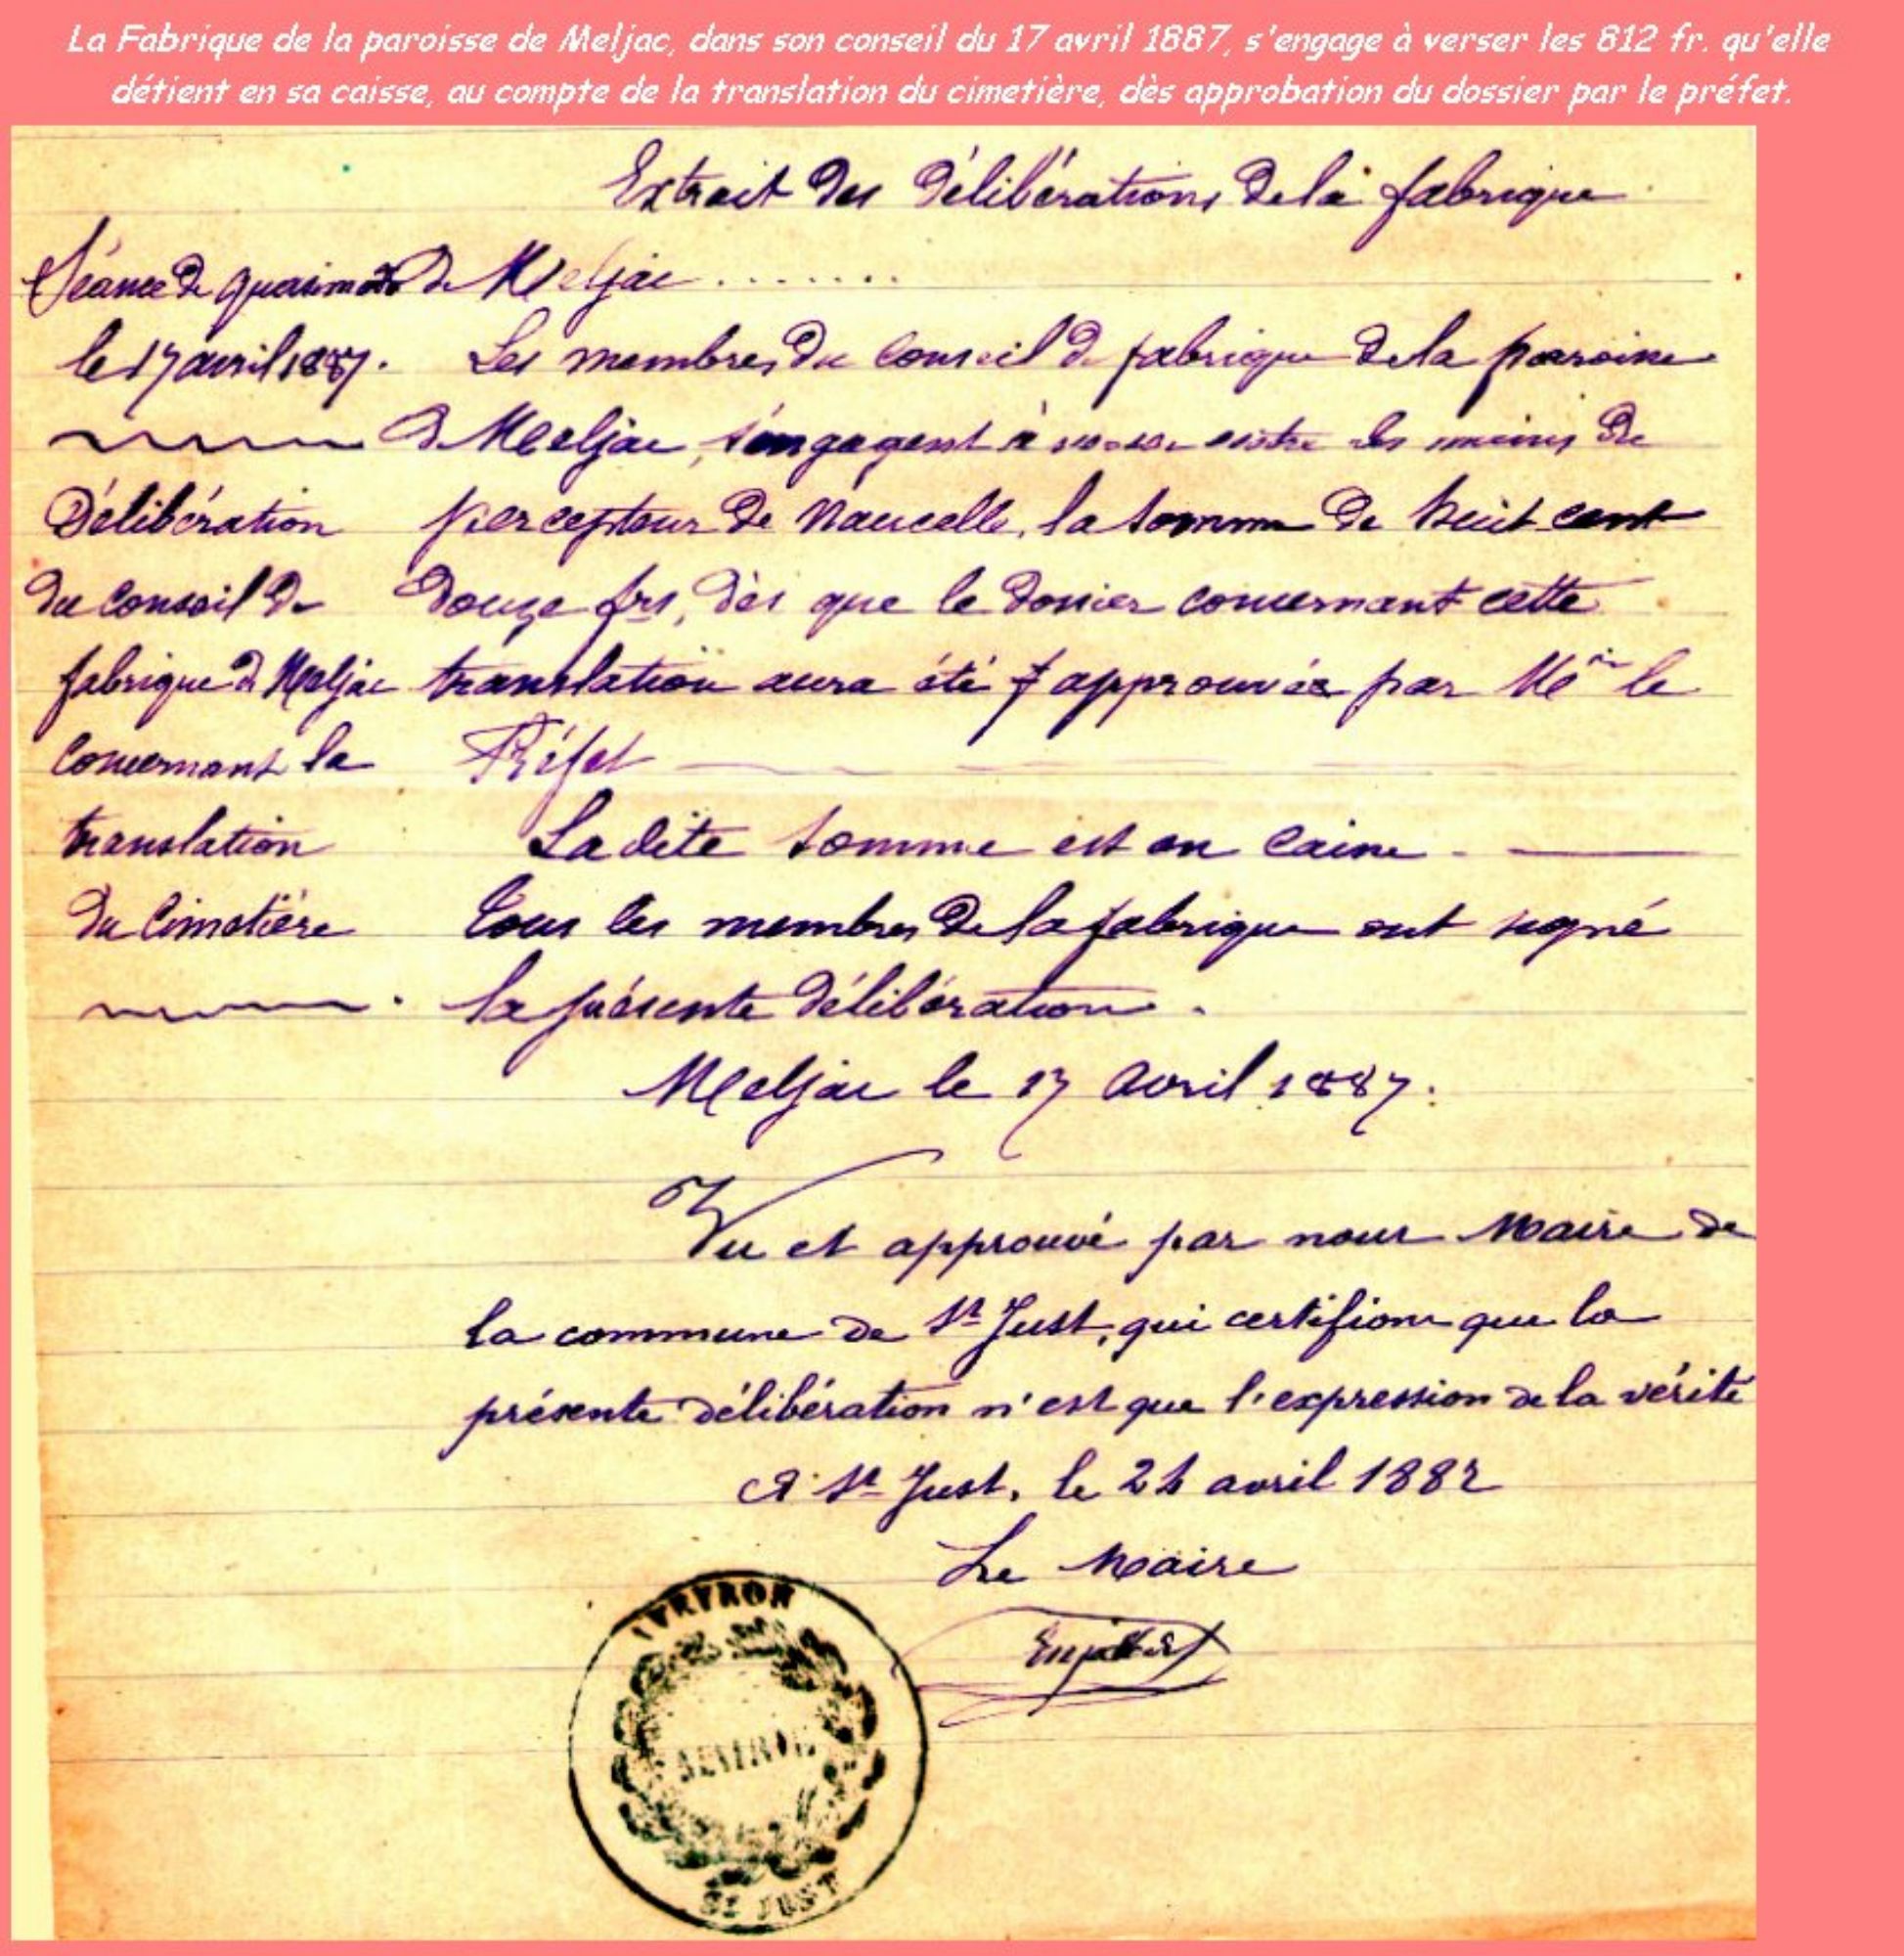 La Fabrique de la paroisse de Meljac, dans son conseil du 17 avril 1887, s'engage à verser les 812 fr. qu'elle
détient en sa caisse, au compte de la translation du cimetière, dès approbation du dossier par le préfet.
Extrait des délibérations de la fabrique
de Meljac . . . . . . . .
Séance de quasimodo
le 17 avril 1887.
Délibération
du Conseil de
fabrique de Meljac
Concernant la
translation
du Cimetière
Les membres du Conseil de fabrique de la paroisse
de Meljac, s'engagent à verser entre les mains du
percepteur de Naucelle, la somme de huit cent
douze frs, dès que le dossier concernant cette
translation aura été approuvée par Mr le
Préfet
La dite somme est en caisse
Tous les membres de la fabrique ont signé
la présente délibération.
Meljac le 17 avril 1887.
Vu et approuvé par nous Maire de
la commune de St Just, qui certifions que la
présente délibération n'est que l'expression de la vérité
A St Just, le avril 1887
Le Maire
AVEYRON
MAIRIE
ST JUST